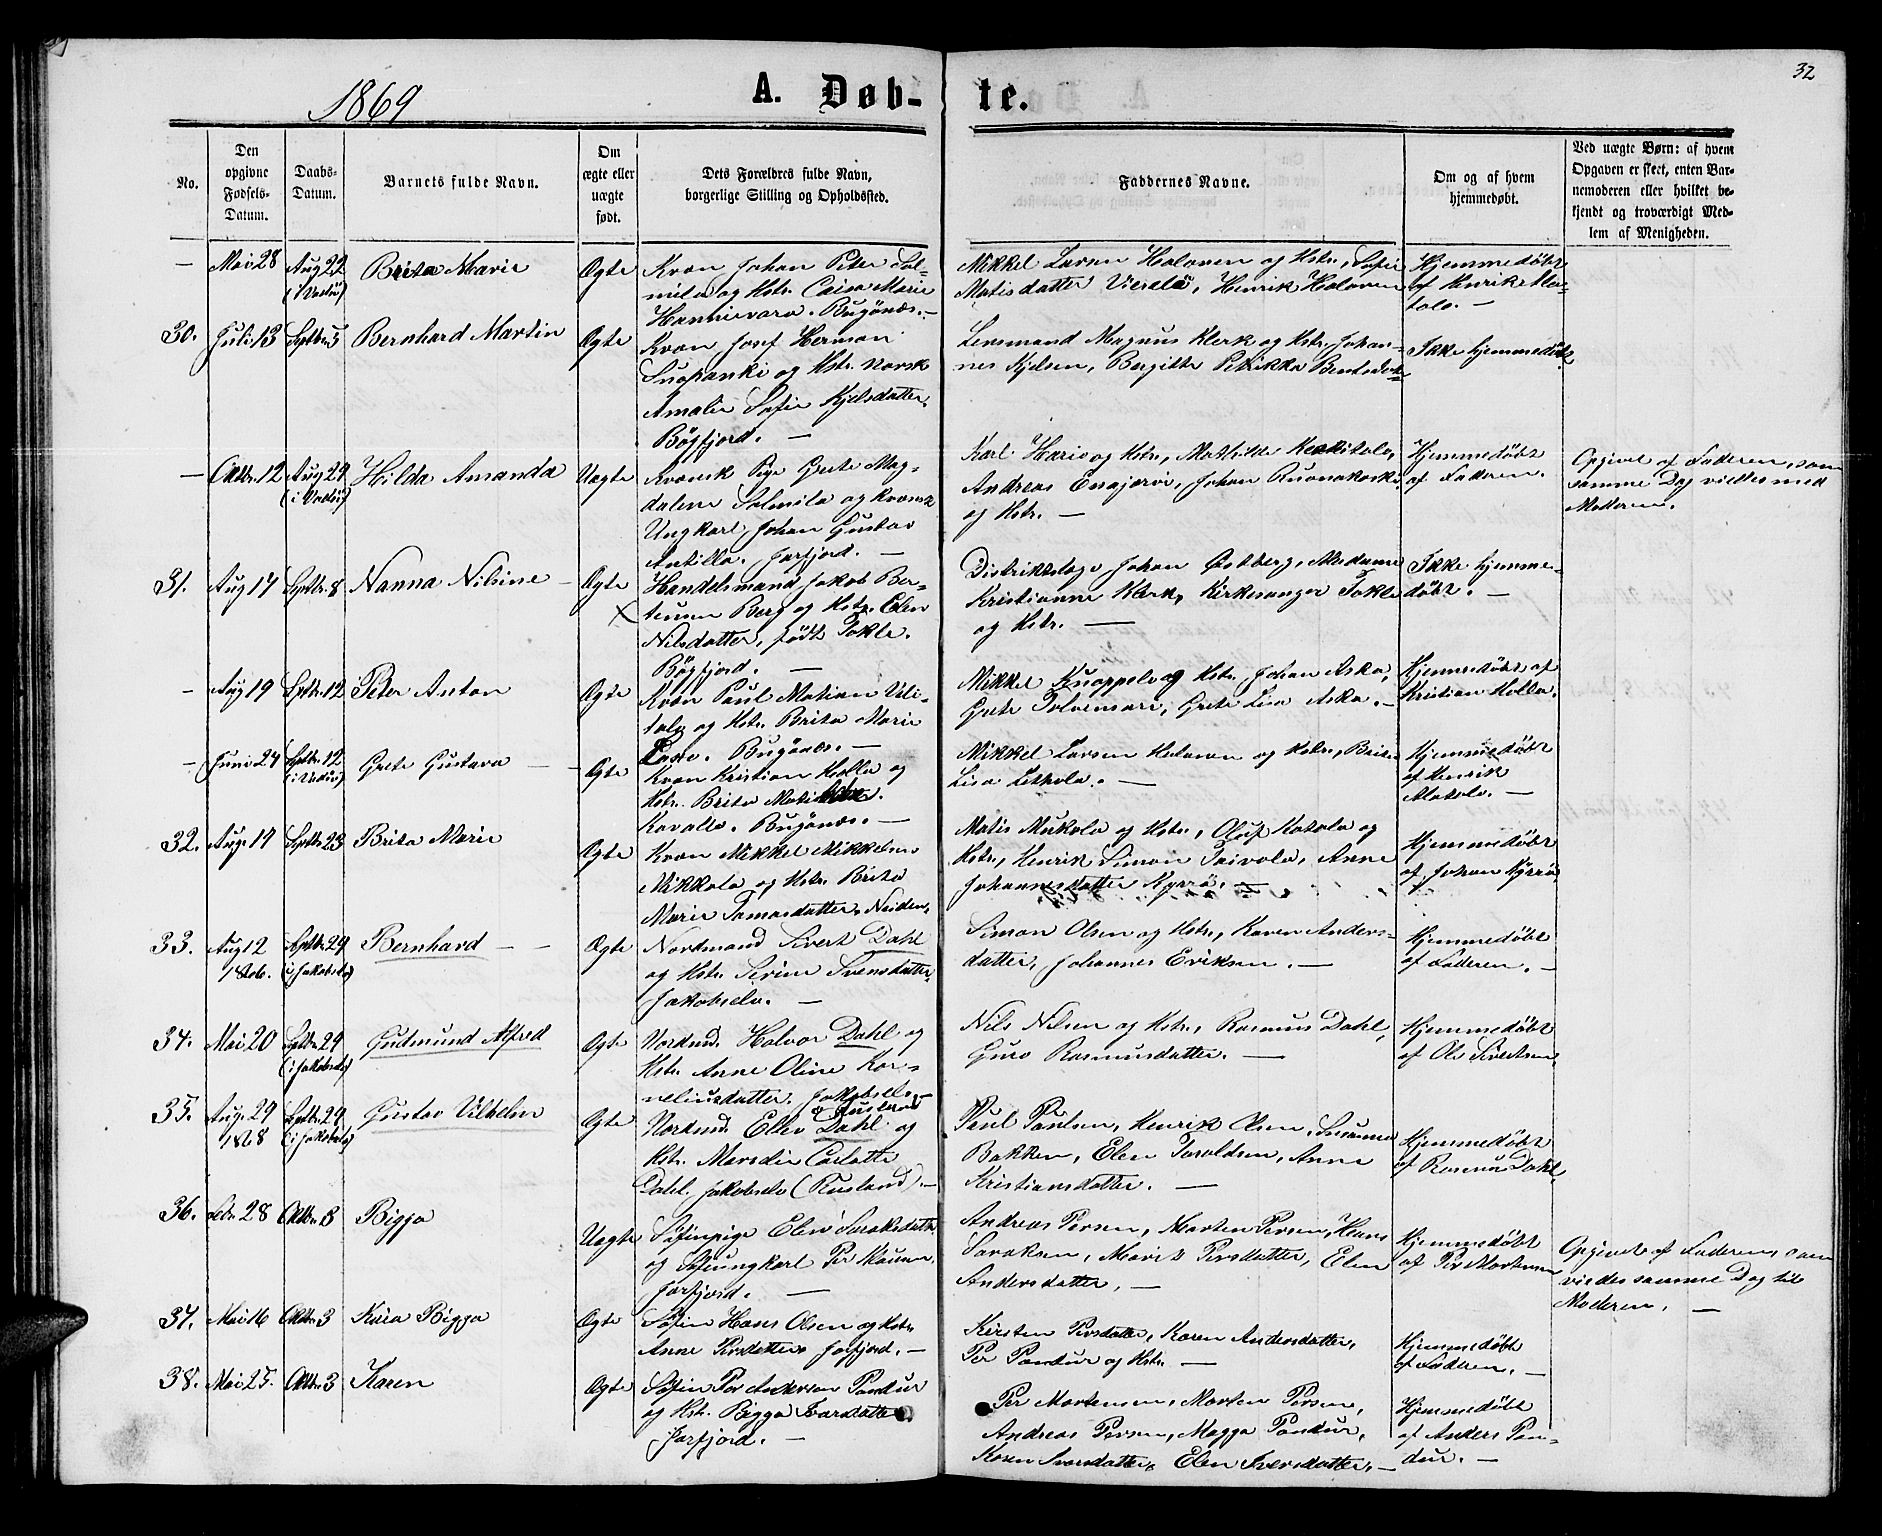 32
1869
A. Døb- te.
No.
Den opgivne Fødsels-Datum.
Daabs-Datum.
Barnets fulde Navn.
Om ægte eller uægte født.
Dets Forældres fulde Navn, borgerlige Stilling og Opholdssted.
Faddernes Navne.
Om og af hvem hjemmedøbt.
Ved uægte Børn: af hvem Opgaven er skeet, enten Barnemoderen eller hvilket bekjendt og troværdigt Medlem af Menigheden.
— Mai 28 Aug 22 (i Vadsö) Brita Marie Ægte
Kvæn Johan Peter Sal-
mila og Hstr. Caisa Marie
Hannievara. Bugönæs. —
Mikkel Larsen Halonen og Hstr., Sofie
Matisdatter Vierela, Henrik Halonen
Hjemmedöbt
af Henrik Ma-
tala. —
30. Juli 13 Septbr 5 Bernhard Martin Ægte
Kvæn Josef Herman
Suopanki og Hstr. norsk
Amalie Sofie Kjelsdatter.
Bögfjord. —
Lensmand Magnus Klerk og Hstr., Johan-
nes Kjelsen, Bergitte Petrikka Bentsdatr.
Ikke hjemmedöbt.
— Oktbr. 12 Aug 29 (i Vadsö) Hilda Amanda Uægte
Kvænsk Pige Grete Mag-
dalene Salmila og kvænsk
Ungkarl Johan Gustav
Antilla. Jarfjord. —
Karl Hario og Hstr., Mathilde
Andreas Enajærvi, Johan Ruonakoski
og Hstr. —
Hjemmedöbt
af Faderen. —
Opgivet af Faderen, som
samme Dag viedes med
Moderen.
31. Aug 17 Septbr 8 Nanna Nilsine — Ægte
Handelsmand Jakob Ber-
teusen Berg og Hstr. Elen
Nilsdatter, födt Tokle.
Bögfjord. —
Distriktslæge Johan Östberg, Madame
Kristianne Klerk, Kirkesanger Tokle
og Hstr. —
Ikke hjemme-
döbt. —
— Aug 19 Septbr 12 Peter Anton Ægte
Kvæn Paul Matian Uli-
talo og Hstr. Brita Marie
Bugönæs. —
Mikkel Knoppela og Hstr. Johan Aska,
Grete Polvensari, Grete Lisa Aska. —
Hjemmedöbt af
Kristian Halla.
— Juni 24 Septbr 12 (i Vadsö) Grete Gustava — Ægte
Kvæn Kristian Halla og
Hstr. Brita
Kavalla. Bugönæs. —
Mikkel Larsen Halonen og Hstr., Brita
Lisa Lethola. —
Hjemmedöbt
af Henrik
Matala. —
32. Aug. 17 Septbr 23 Brita Marie Ægte
Kvæn Mikkel Mikkelsen
Mikkola og Hstr. Brita
Marie Tomasdatter. Neiden.
Matis Mukola og Hstr., Oluf Katola og
Hstr., Henrik Simon Paivola, Anne
Johannesdatter Nyrrö. —
Hjemmedöbt
af Johan Kyrrö.
33. Aug 12 1866. Septbr 29 (i Jakobselv) Bernhard — — Ægte
Nordmand Sivert Dahl
og Hstr. Serine Svensdatter
Jakobselv. —
Simon Olsen og Hstr., Karen Anders-
datter, Johannes Eriksen. —
Hjemmedöbt
af Faderen. —
34. Mai 20 Septbr 29 (i Jakobselv) Gudmund Alfred Ægte
Nordmd. Halvor Dahl og
Hstr. Anne Oline Kor-
neliusdatter. Jakobselv. —
Nils Nilsen og Hstr., Rasmus Dahl,
Guro Rasmusdatter. —
Hjemmedöbt
af Ole Sivertsen.
35. Aug. 29 1868 Septbr 29 (i Jakobselv) Gustav Vilhelm Ægte
Nordmd. Elev Dahl og
Hstr. Maredie Carlotte
Dahl. Jakobselv (Rusland). —
Paul Paulsen, Henrik Olsen, Susanna
Bakken, Elen Taraldsen, Anne
Kristiansdatter. —
Hjemmedöbt
af Rasmus Dahl.
36. Febr 28 Oktbr. 3 Bigga Uægte
Söfinpige Elen Saraksdattr
og Söfinungkarl Per
Jarfjord. —
Andreas Persen, Morten Persen, Hans
Saraksen, Marit Persdatter, Elen
Andersdatter. —
Hjemmedöbt
af Per Mortensen
Opgivet af Faderen, som
viedes samme Dag til
Moderen. —
37. Mai 16 Oktbr 3 Karia Bigga Ægte
Söfin Hans Olsen og Hstr.
Anne Persdatter. Jarfjord. —
Kirsten Persdatter, Karen Andersdatter,
Per Pandur og Hstr. —
Hjemmedöbt
af Faderen. —
38. Mai 25. Oktbr 3 Karen Ægte
Söfin Per Andersen Pandur
og Hstr. Bigga Ivarsdatter
Jarfjord. —
Per Mortensen, Morten Persen,
Andreas Persen, Magga Pandur,
Karen Ivarsdatter, Elen Iversdatter. —
Hjemmedöbt
af Anders Pan-
dur. —